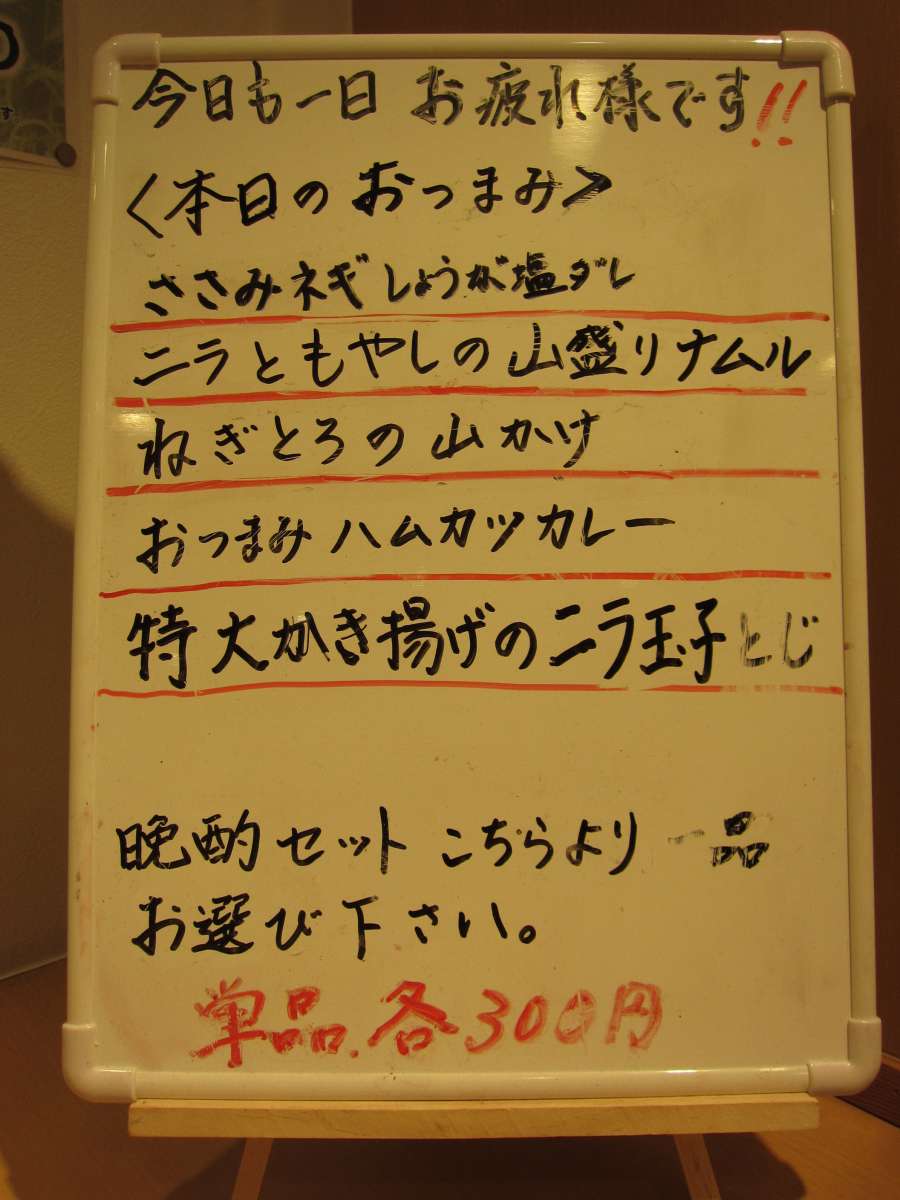 今日も一日 お疲れ様です!!
<本日のおつまみ>
ささみネギしょうが塩ダレ
ニラともやしの山盛りナムル
ねぎとろの山かけ
おつまみハムカツカレー
特大かき揚げのニラ玉子とじ
晩酌セット こちらより 一品
お選び下さい。
単品.各300円